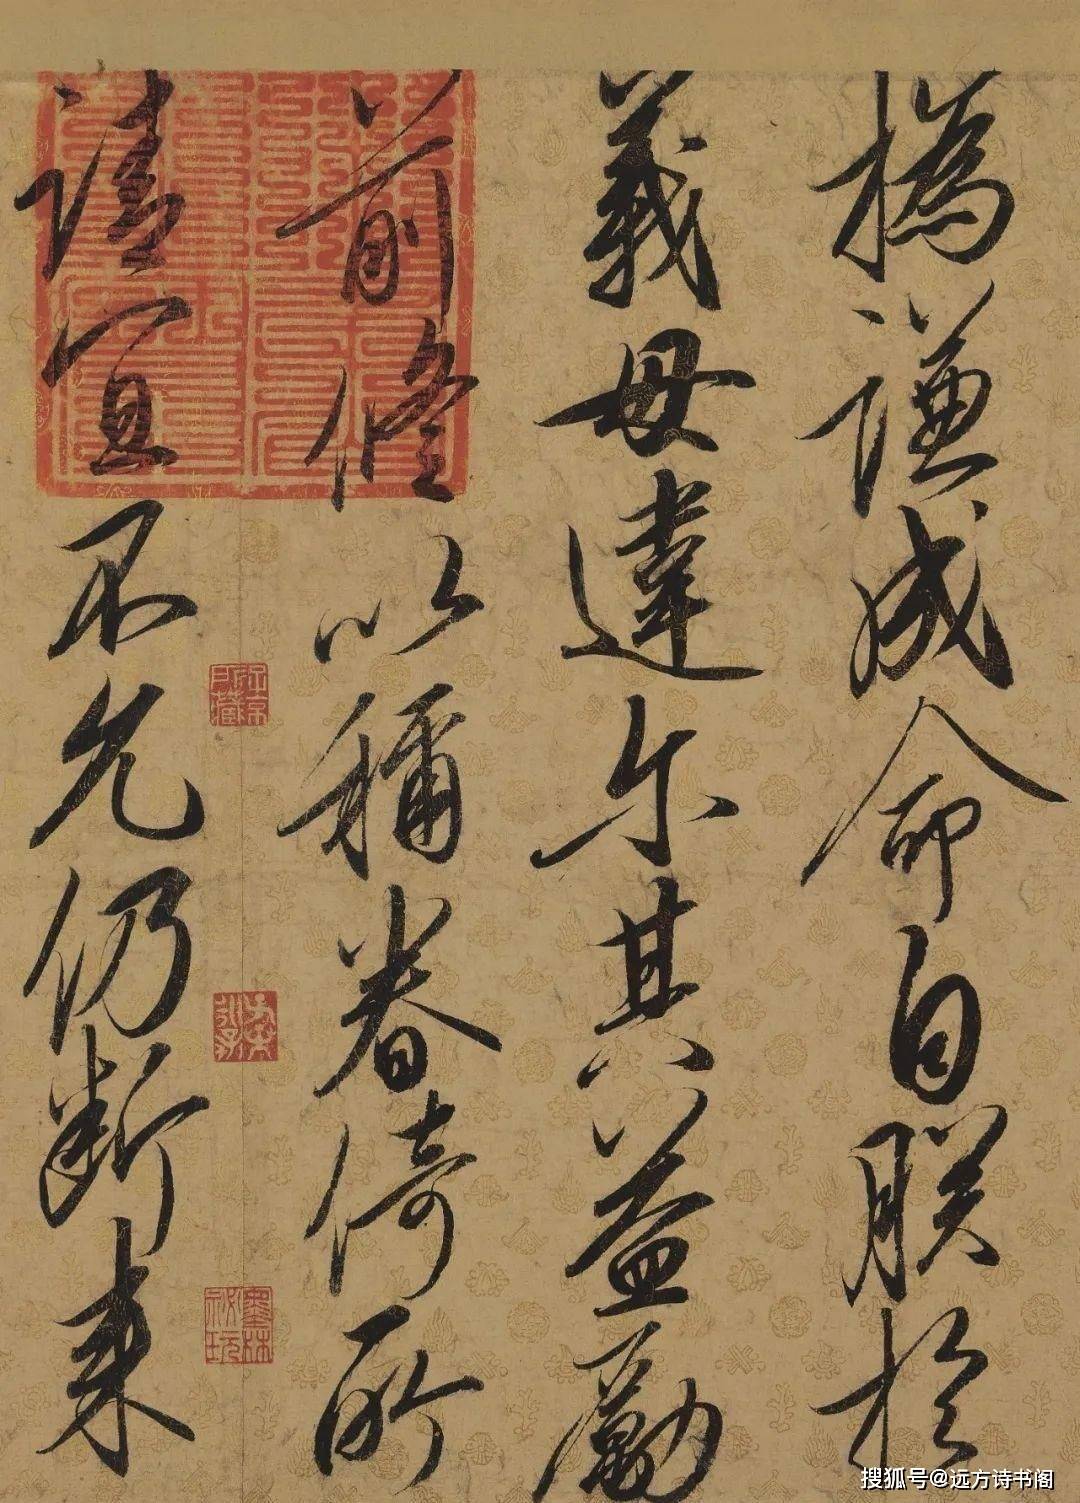 撝謙成命自朕於
義毋違尔其益勵
前修以稱眷倚所
請宜不允仍斷来
搜狐号@远方诗书阁